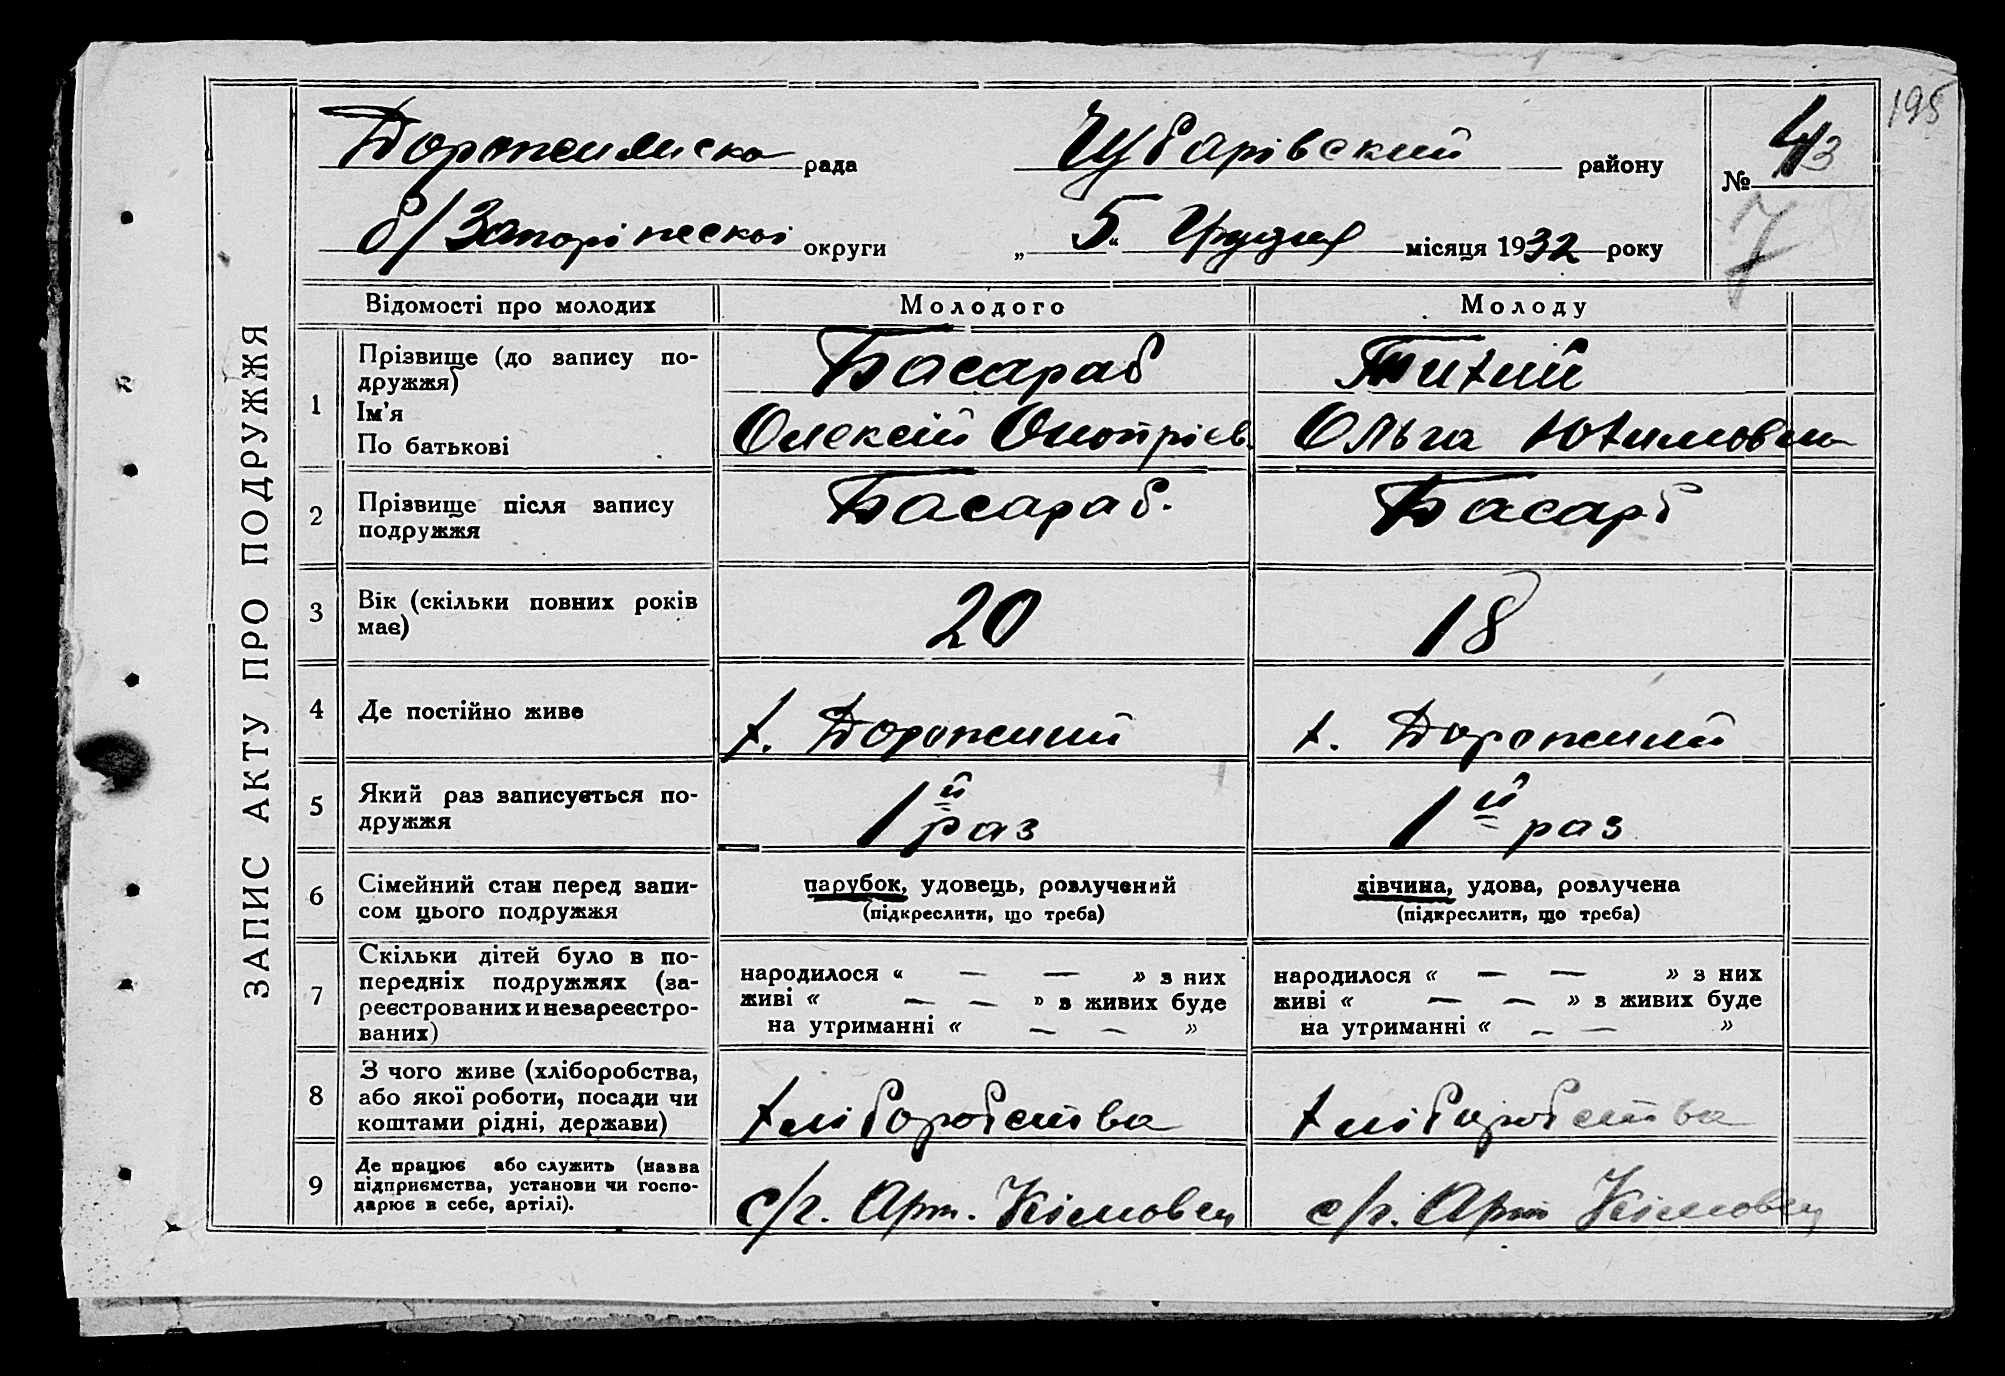 195
Дорожнянска рада Чубарівский району № 43
б/Запоріжскої округи „ 5 “ Грудня місяця 1932 року
7
ЗАПИС АКТУ ПРО ПОДРУЖЖЯ
Відомості про молодих Молодого Молоду
1 Прізвище (до запису по-
дружжя) Басараб Тихий
Ім'я
По батькові Олексій Онопріев. Ольга Юхимовна
2 Прізвище після запису
подружжя Басараб. Басарб
3 Вік (скільки повних років
має) 20 18
4 Де постійно живе х. Дорожний х. Дорожний
5 Який раз записується по-
дружжя 1й раз 1й раз
6 Сімейний стан перед запи-
сом цього подружжя
парубок, удовець, розлучений дівчина, удова, розлучена
(підкреслити, що треба) (підкреслити, що треба)
7 Скільки дітей було в по-
передніх подружжях (за-
реєстрованих и незареєстро-
ваних)
народилося « — — » з них народилося « — — » з них
живі « — — » з живих буде живі « — — » з живих буде
на утриманні « — — » на утриманні « — — »
8 З чого живе (хліборобства,
або якої роботи, посади чи
коштами рідні, держави) хліборобства хліборобства
9 Де працює або служить (назва
підприємства, установи чи госпо-
дарює в себе, артілі). с/г. Арт. Кімовец с/г. Арт Кімовец